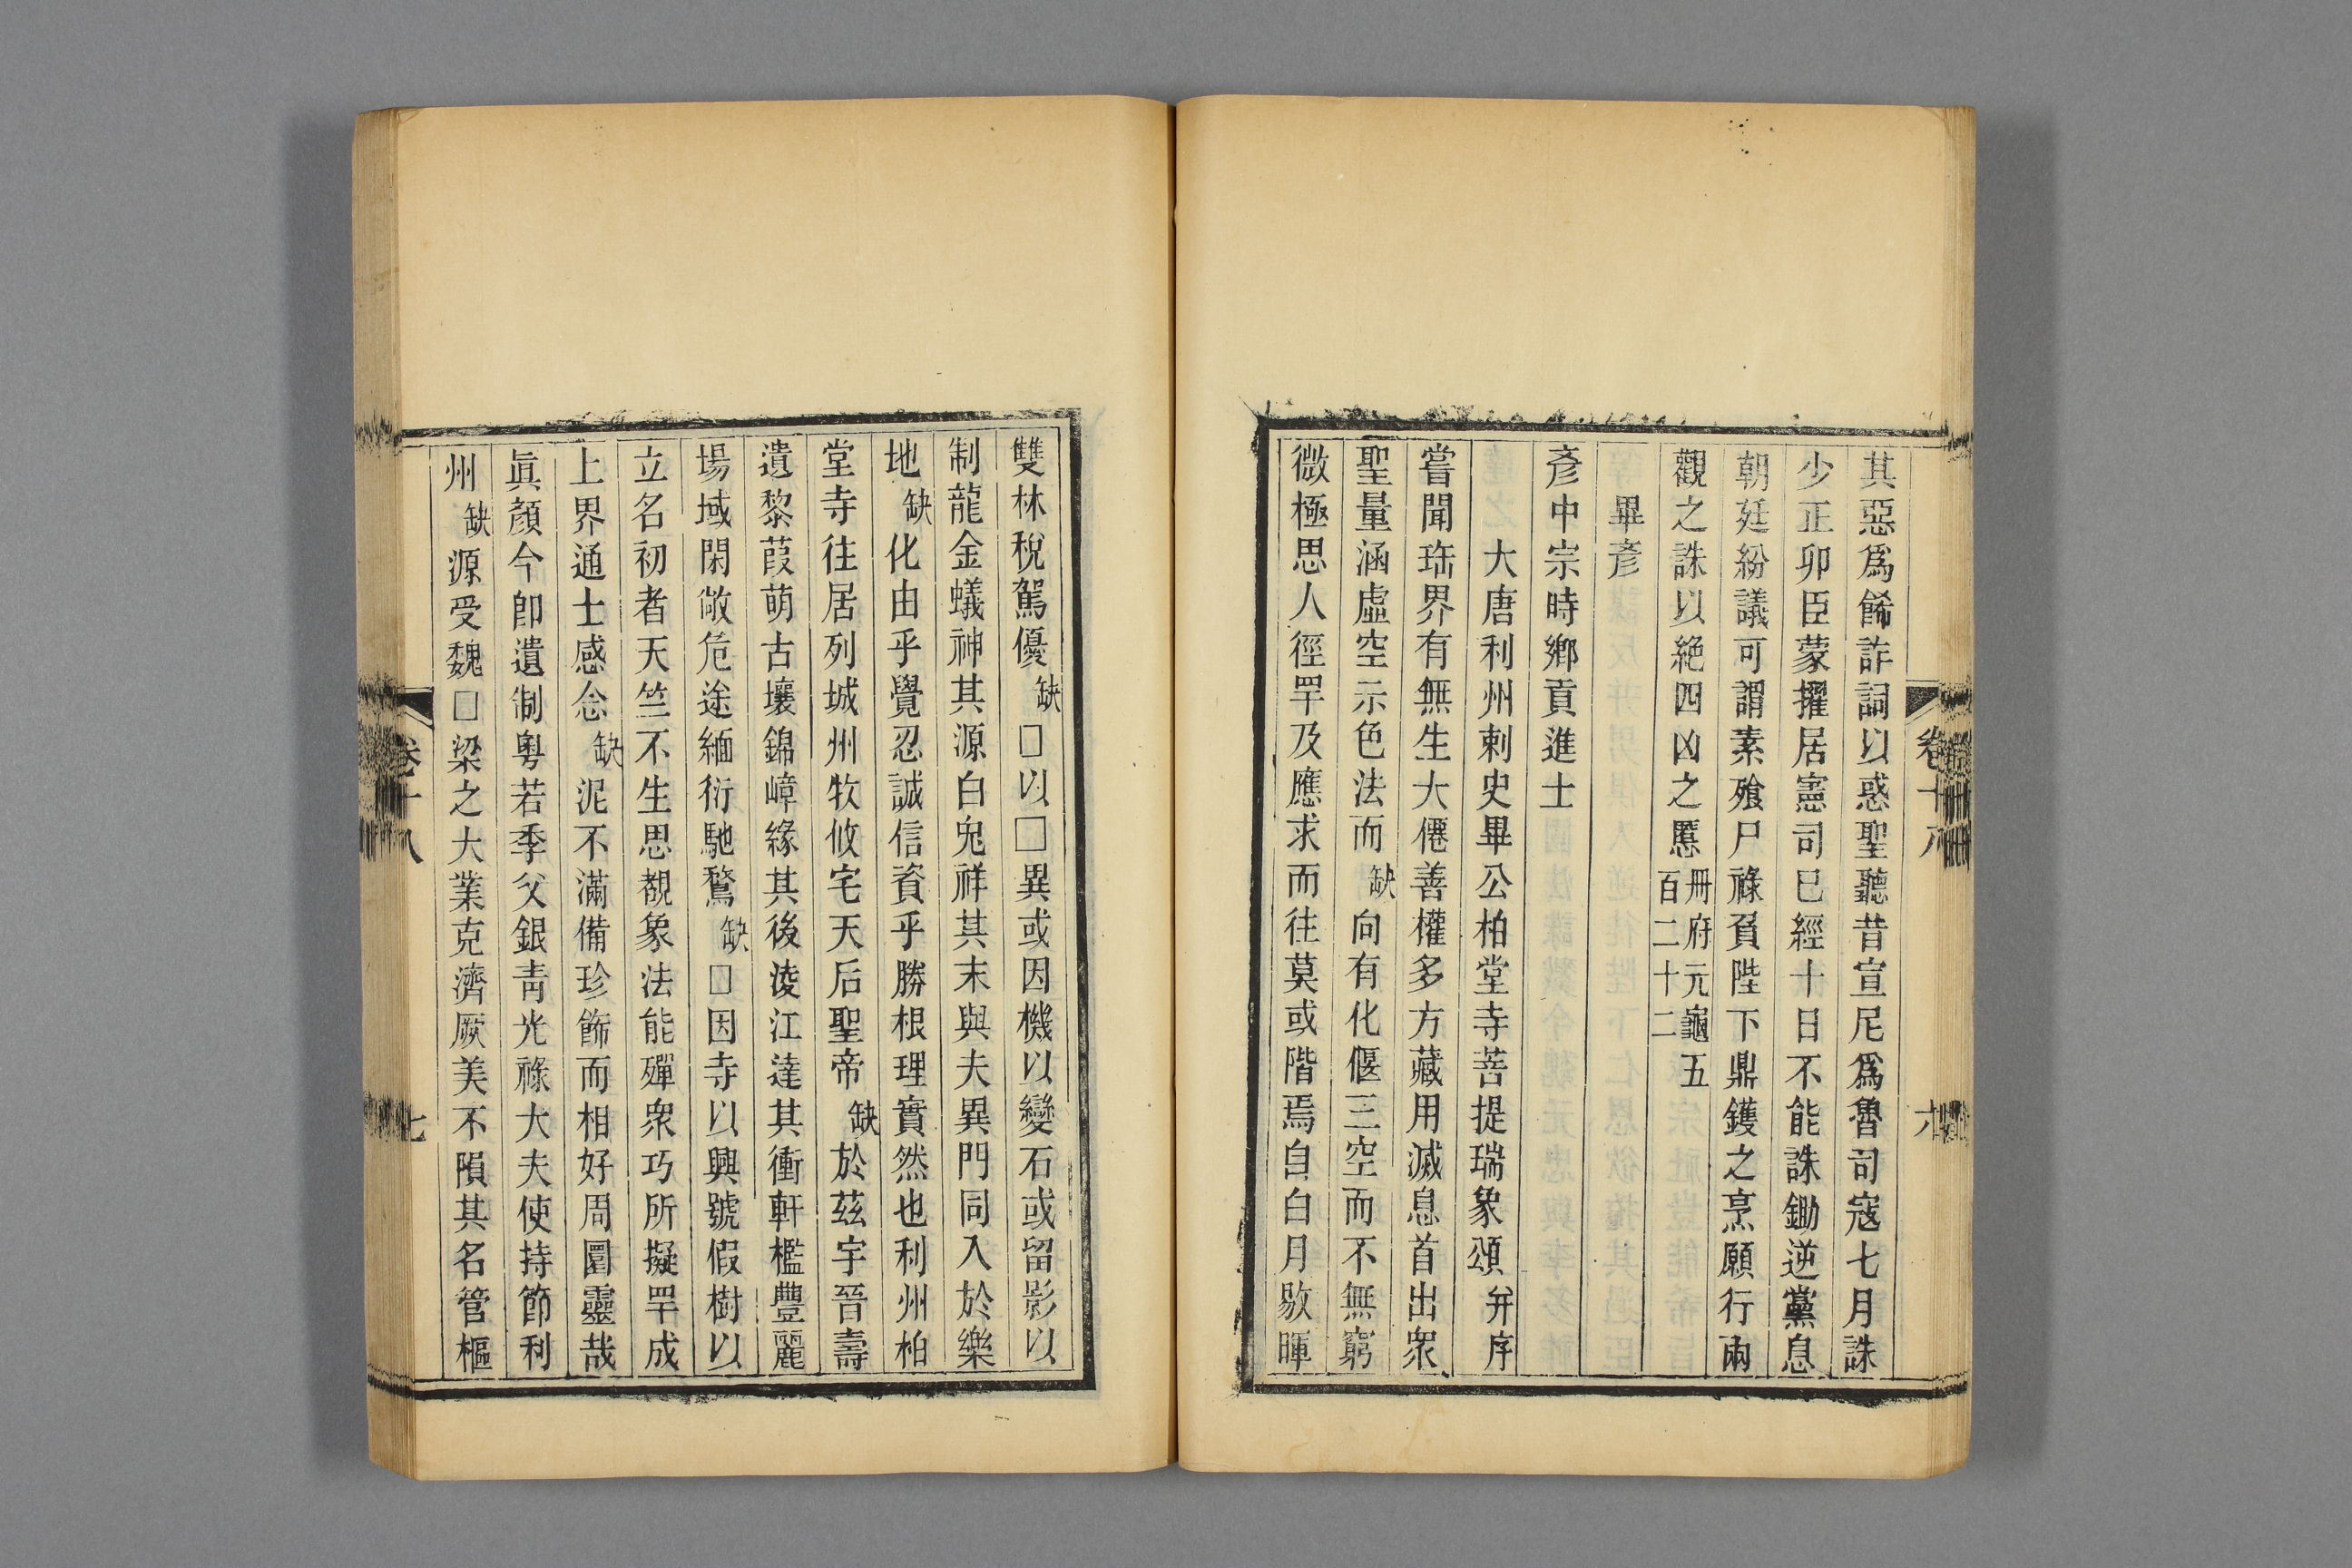 其惡爲餙詐詞以惑聖聽昔宣尼爲魯司寇七月誅
少正卯臣蒙擢居憲司已經十日不能誅鋤逆黨息
朝廷紛議可謂素飱尸祿負陛下鼎鑊之烹願行兩
觀之誅以絶四凶之慝冊府元龜五百二十二
畢彥
彥中宗時鄉貢進士
大唐利州刺史畢公柏堂寺菩提瑞象頌并序
嘗聞珤界有無生大僊善權多方藏用滅息首出衆
聖量涵虛空示色法而缺向有化偃三空而不無窮
微極思人徑罕及應求而往莫或階焉自白月歇暉
卷十八
六
雙林稅駕優缺□以□異或因機以變石或留影以
制龍金蟻神其源白兔祥其末與夫異門同入於樂
地缺化由乎覺忍誠信資乎勝根理實然也利州柏
堂寺往居列城州牧攸宅天后聖帝缺於茲宇晉壽
遺黎葭萌古壤錦嶂緣其後淩江達其衝軒檻豐麗
場域閑敞危途緬衍馳鶩缺□因寺以興號假樹以
立名初者天竺不生思覩象法能殫衆巧所擬罕成
上界通士感念缺泥不滿備珍飾而相好周圓靈哉
眞顏今卽遺制粤若季父銀靑光祿大夫使持節利
州缺源受魏□梁之大業克濟厥美不隕其名管樞
卷十八
七